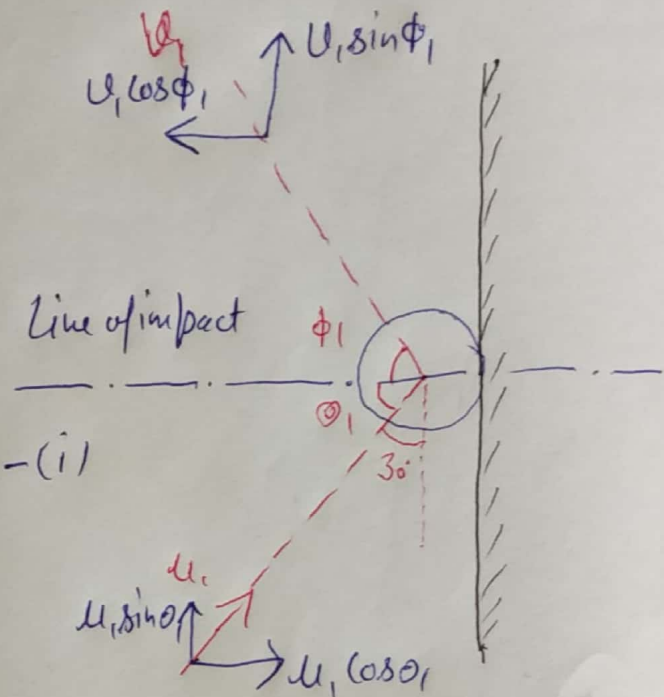 v₁
v₁sinϕ₁
v₁cosϕ₁
Line of impact
ϕ₁
θ₁
-(i)
30
u₁
u₁sinθ₁
u₁cosθ₁